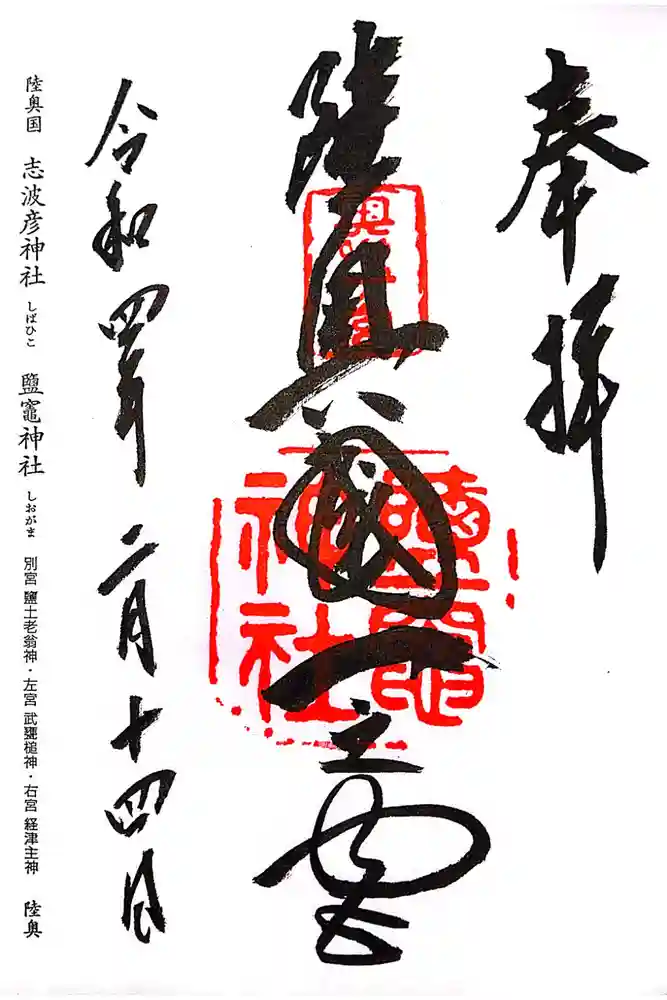 奉拝
陸奥國一之宮
陸奥国 一之宮
鹽竈神社
令和四年二月十四日
陸奥国 志波彦神社 しばひこ 鹽竈神社 しおがま 別宮 鹽土老翁神・左宮 武甕槌神・右宮 経津主神 陸奥